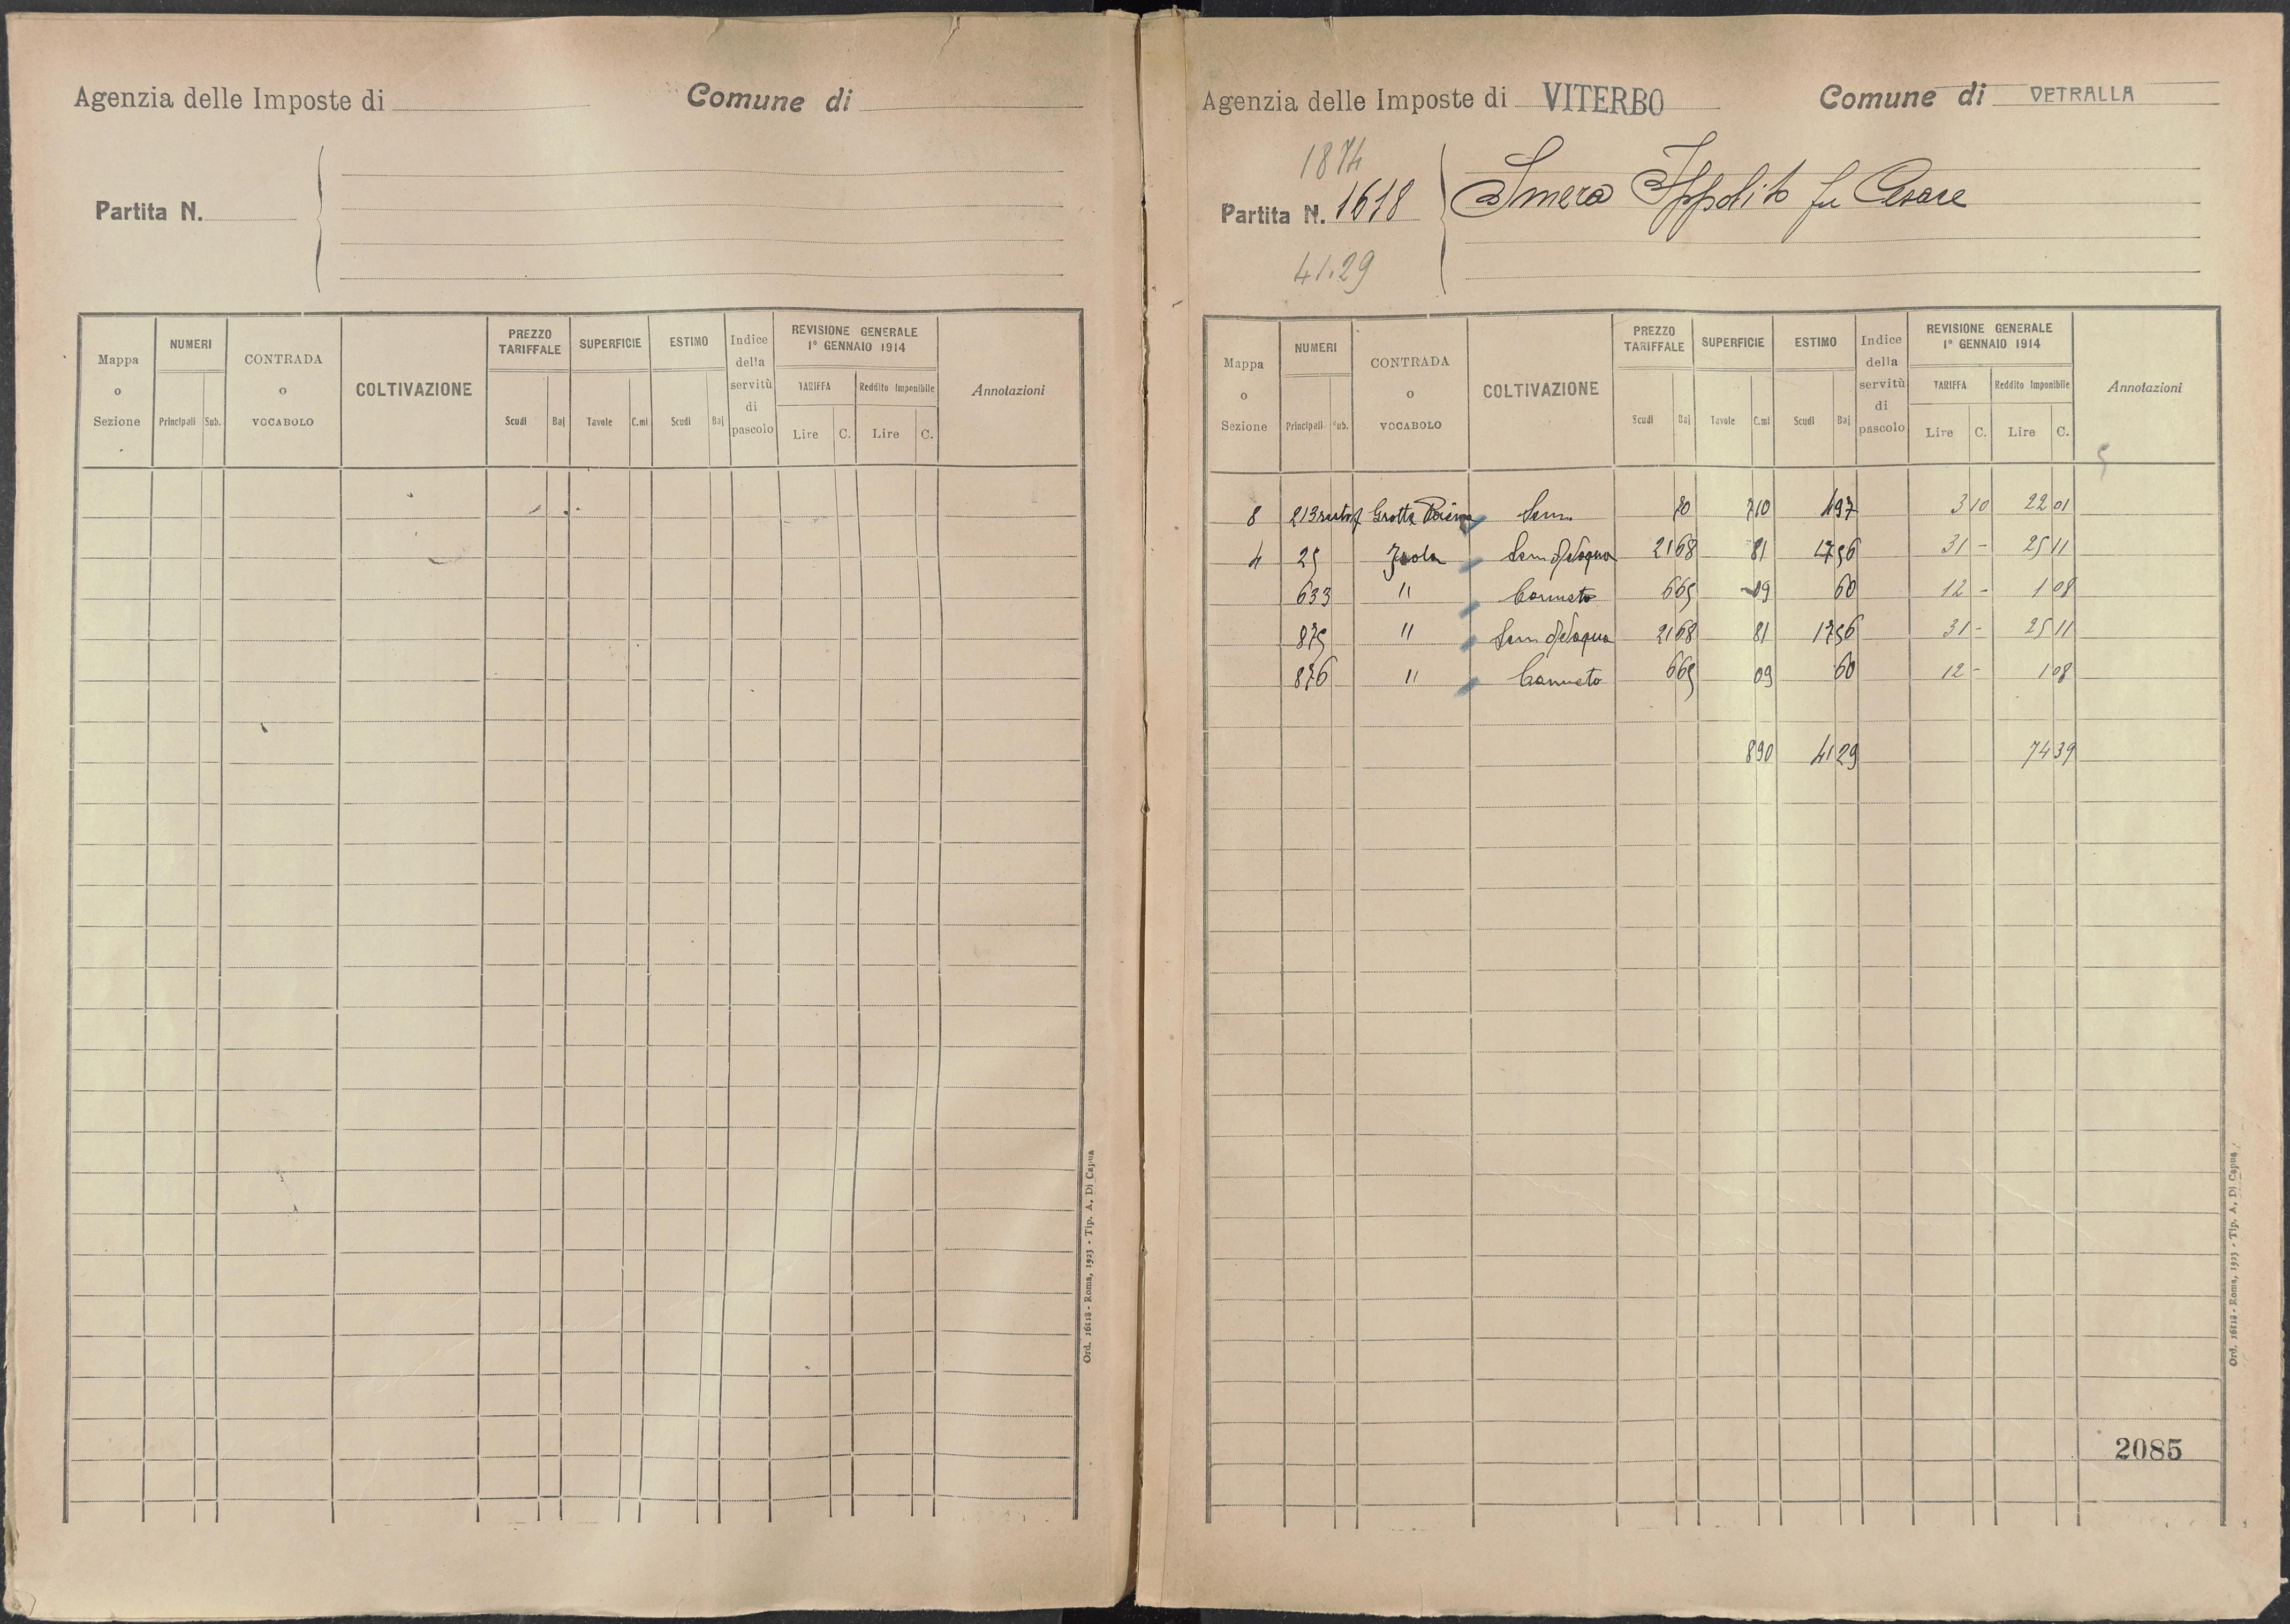 Agenzia delle Imposte di Comune di
Partita N.
Mappa o Sezione NUMERI Principali Sub. CONTRADA o VOCABOLO COLTIVAZIONE PREZZO TARIFFALE Scudi Baj SUPERFICIE Tavole C.mi ESTIMO Scudi Baj Indice della servitù di pascolo REVISIONE GENERALE 1° GENNAIO 1914 TARIFFA Lire C. Reddito Imponibile Lire C. Annotazioni
Ord. 16118 - Roma, 1923 - Tip. A. Di Capua
Agenzia delle Imposte di VITERBO Comune di VETRALLA
1874
Partita N. 1618 Smera Ippolito fu Cesare
41.29
Mappa o Sezione NUMERI Principali Sub. CONTRADA o VOCABOLO COLTIVAZIONE PREZZO TARIFFALE Scudi Baj SUPERFICIE Tavole C.mi ESTIMO Scudi Baj Indice della servitù di pascolo REVISIONE GENERALE 1° GENNAIO 1914 TARIFFA Lire C. Reddito Imponibile Lire C. Annotazioni
8 213 Grotta Sem. 70 7 10 4 97 3 10 22 01
4 25 Isola Sem 21 68 81 17 56 31 - 25 11
633 " Canneto 6 65 - 09 60 12 - 1 08
875 " Sem 21 68 81 17 56 31 - 25 11
876 " Canneto 6 65 09 60 12 - 1 08
8 90 41 29 74 39
2085
Ord. 16118 - Roma, 1923 - Tip. A. Di Capua